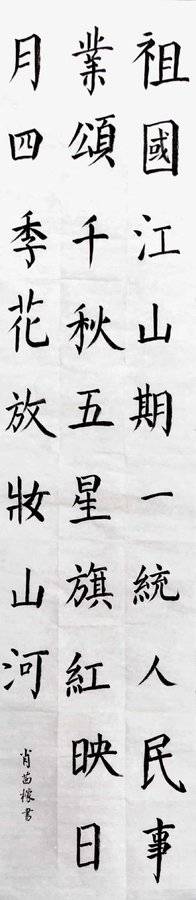 祖國江山期一統人民事
業頌千秋五星旗紅映日
月四季花放妝山河
肖苗書